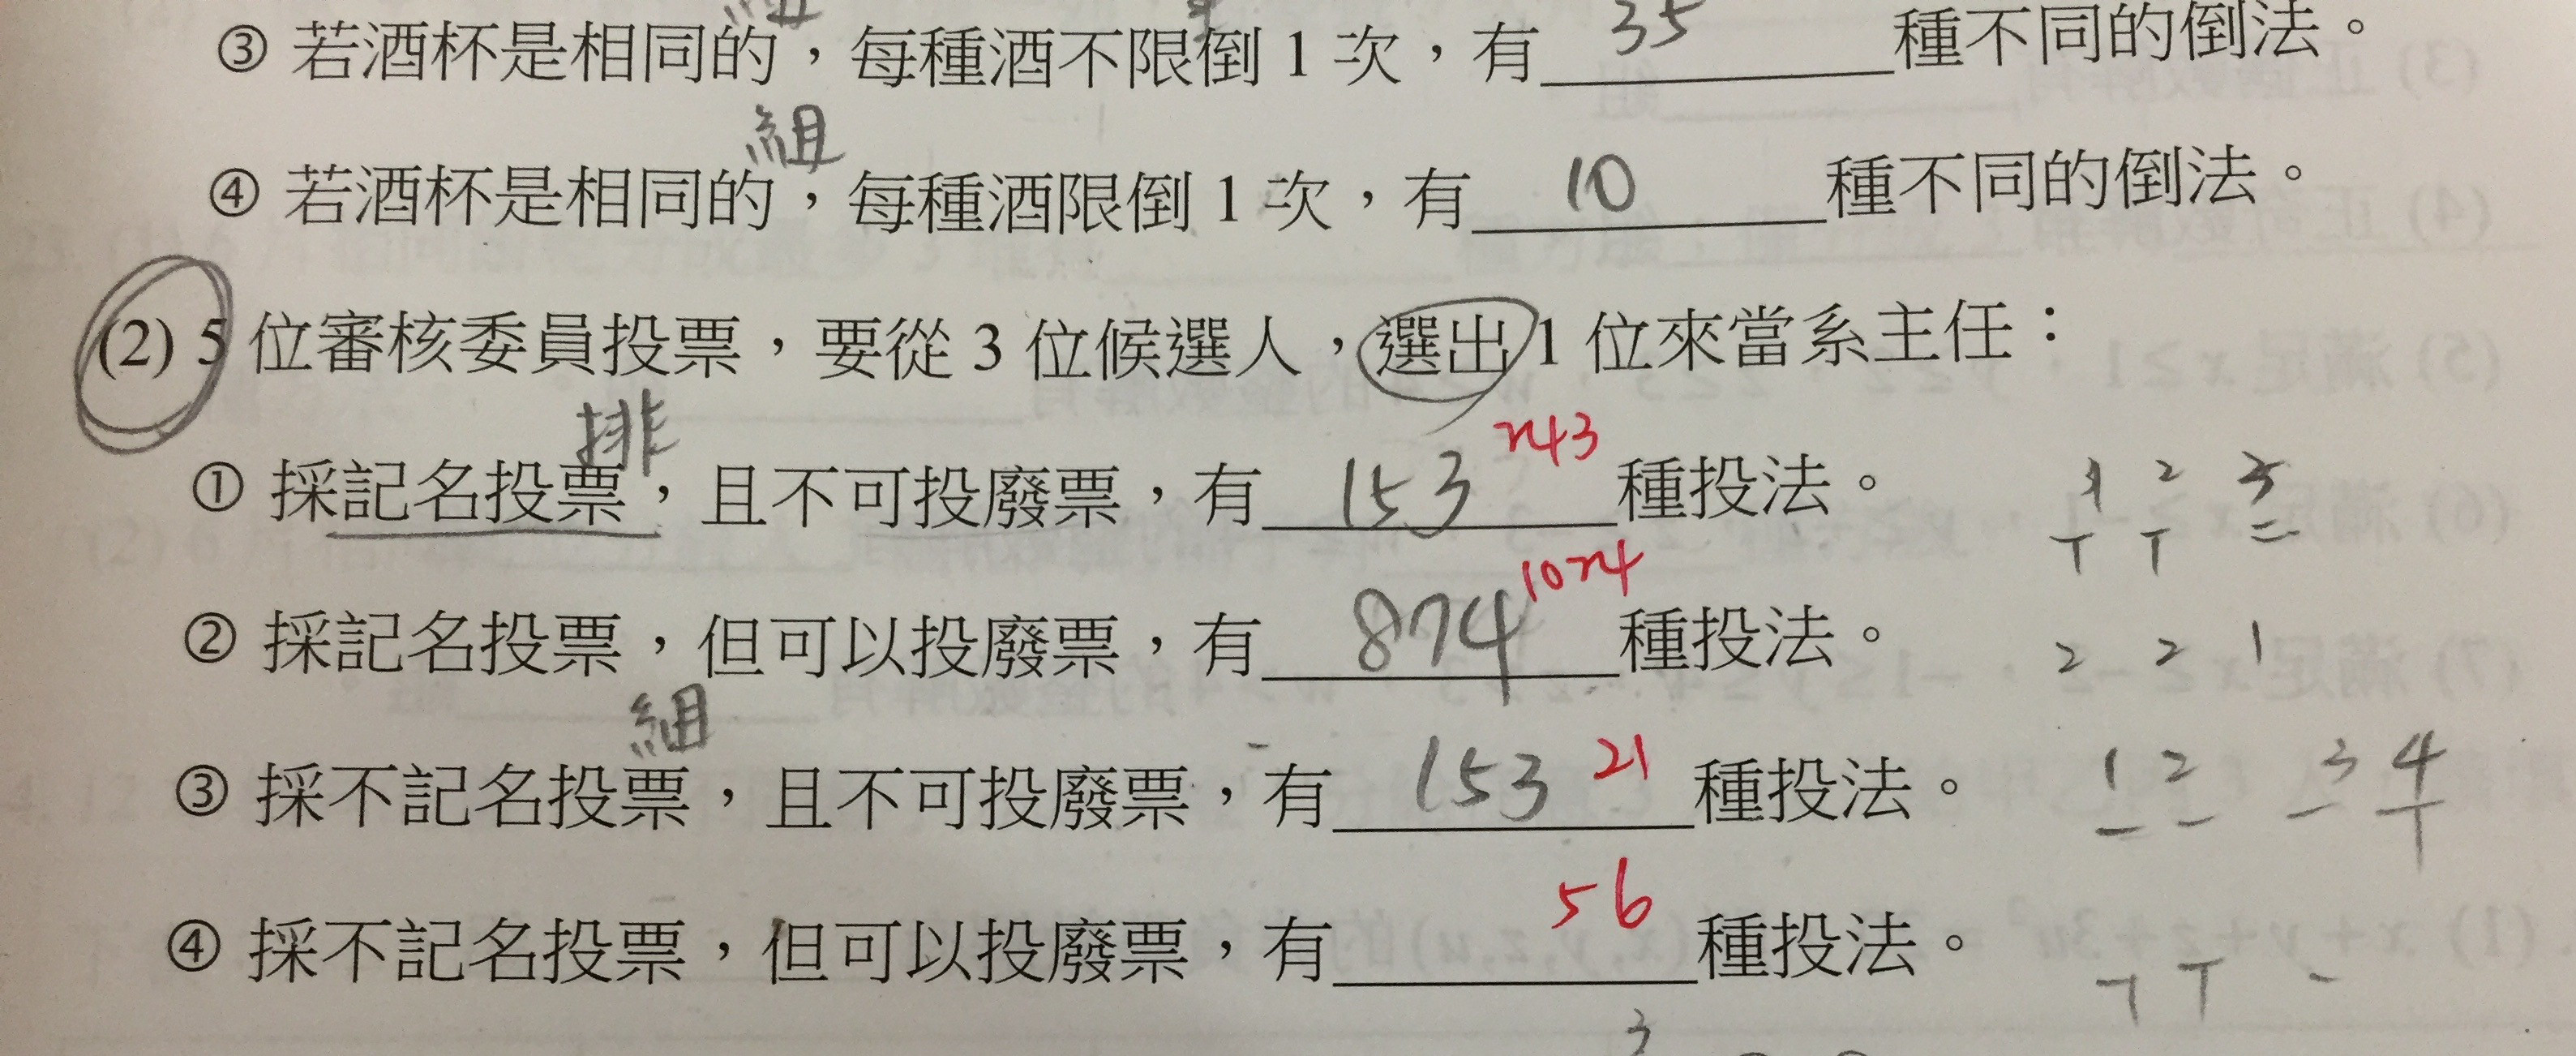 ③ 若酒杯是相同的，每種酒不限倒 1 次，有 35 種不同的倒法。
組
④ 若酒杯是相同的，每種酒限倒 1 次，有 10 種不同的倒法。
(2) 5 位審核委員投票，要從 3 位候選人，選出 1 位來當系主任：
排
243
① 採記名投票，且不可投廢票，有 153 種投法。
1 2 3
1024
② 採記名投票，但可以投廢票，有 874 種投法。
2 2 1
組
③ 採不記名投票，且不可投廢票，有 153 21 種投法。
1 2 3 4
56
④ 採不記名投票，但可以投廢票，有 種投法。